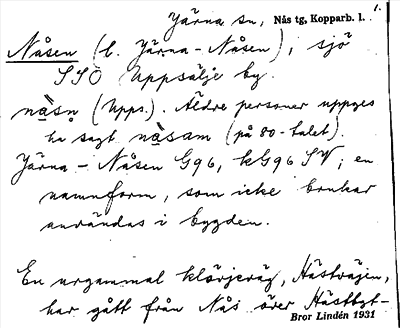 Järna sn, Nås tg, Kopparb. l. 1.
Nåsen (l. Järna-Nåsen), sjö
SSO Uppsälje by.
nåsn (Upps.). Äldre personer uppges
ha sagt nåsam (på 80-talet).
Järna-Nåsen G96, kG96 SV; en
namnform, som icke brukar
användas i bygden.
En urgammal klövjeväg, Hästvägen,
har gått från Nås över Hästbgt-
Bror Lindén 1931